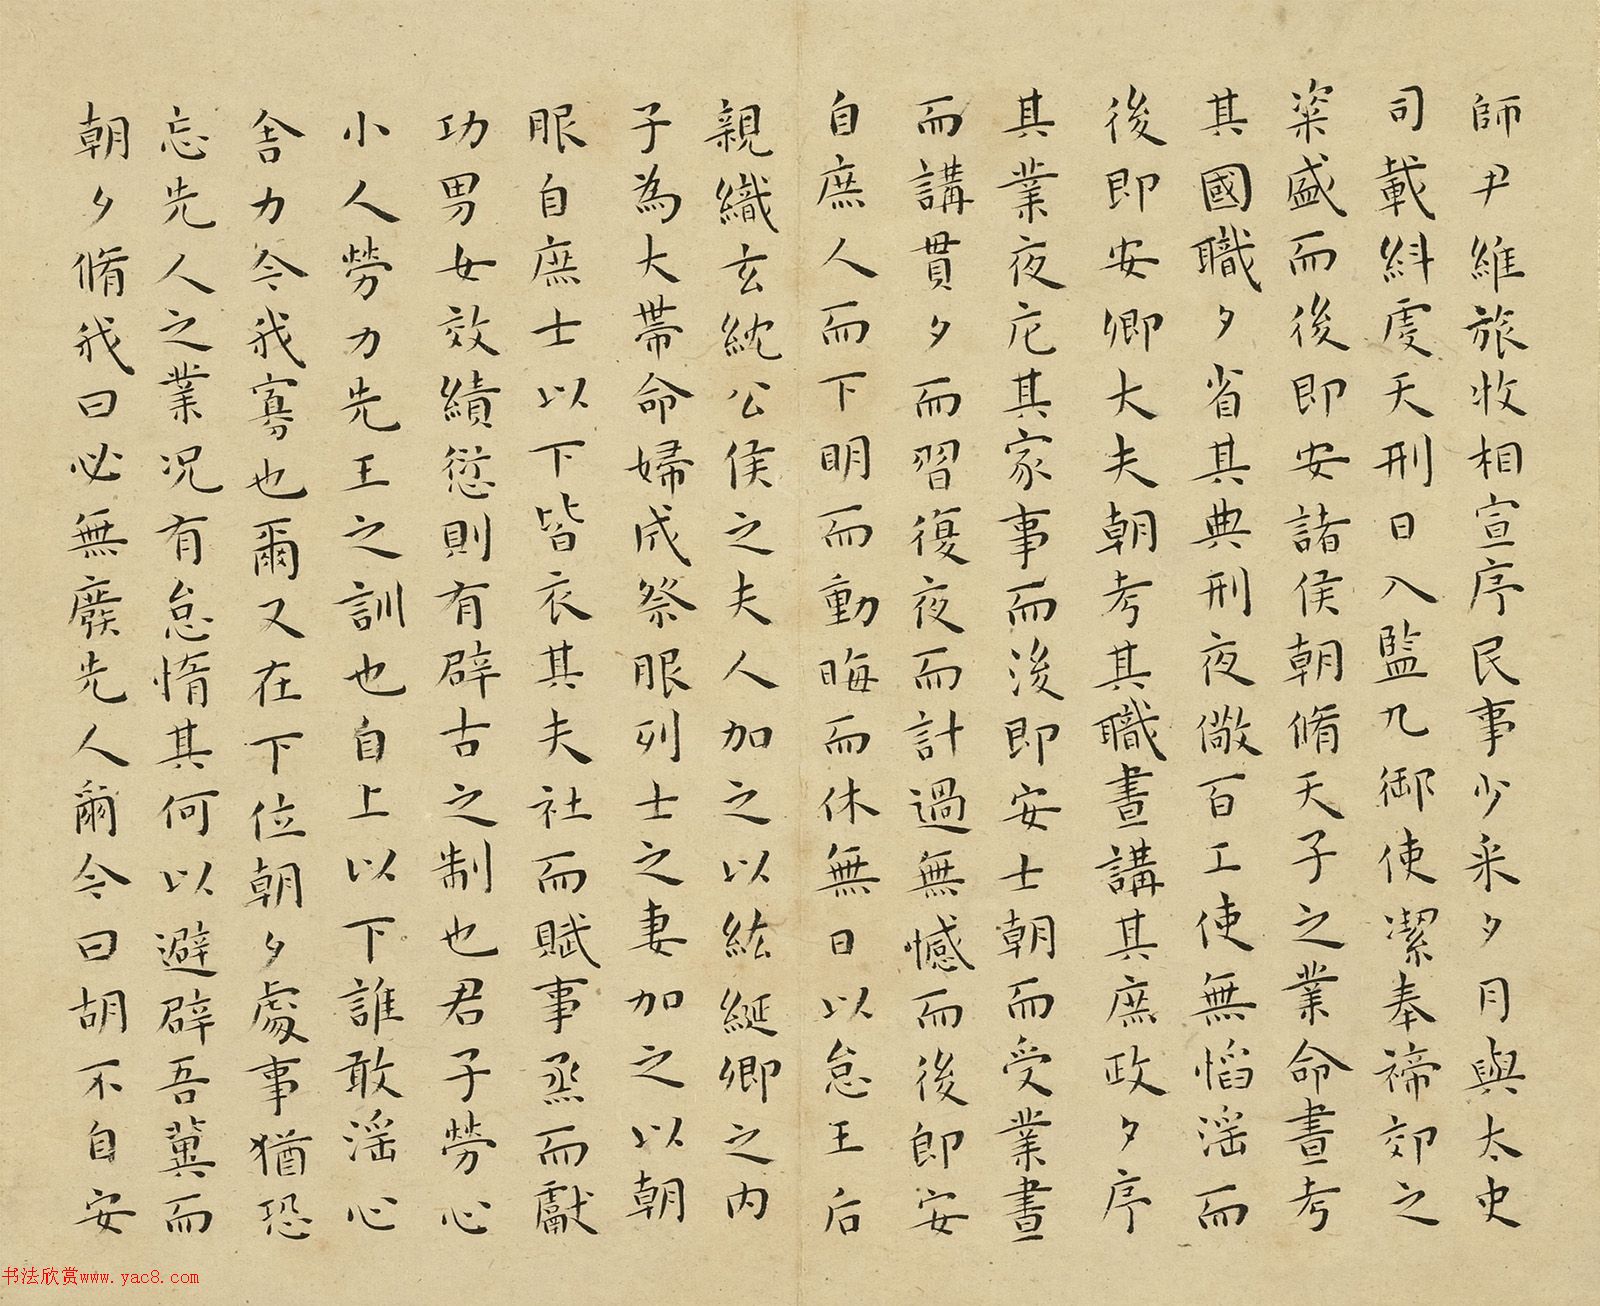 師尹維旅牧相宣序民事少采夕月與太史
司載糾虔天刑日入監九御使潔奉禘郊之
粢盛而後即安諸侯朝脩天子之業命晝考
其國職夕省其典刑夜儆百工使無慆淫而
後即安卿大夫朝考其職晝講其庶政夕序
其業夜庀其家事而後即安士朝而受業晝
而講貫夕而習復夜而計過無憾而後即安
自庶人而下明而動晦而休無日以怠王后
親織玄紞公侯之夫人加之以紘綖卿之內
子為大帶命婦成祭服列士之妻加之以朝
服自庶士以下皆衣其夫社而賦事烝而獻
功男女效績愆則有辟古之制也君子勞心
小人勞力先王之訓也自上以下誰敢淫心
舍力今我寡也爾又在下位朝夕處事猶恐
忘先人之業况有怠惰其何以避辟吾冀而
朝夕脩我曰必無廢先人爾今曰胡不自安
书法欣赏www.yac8.com